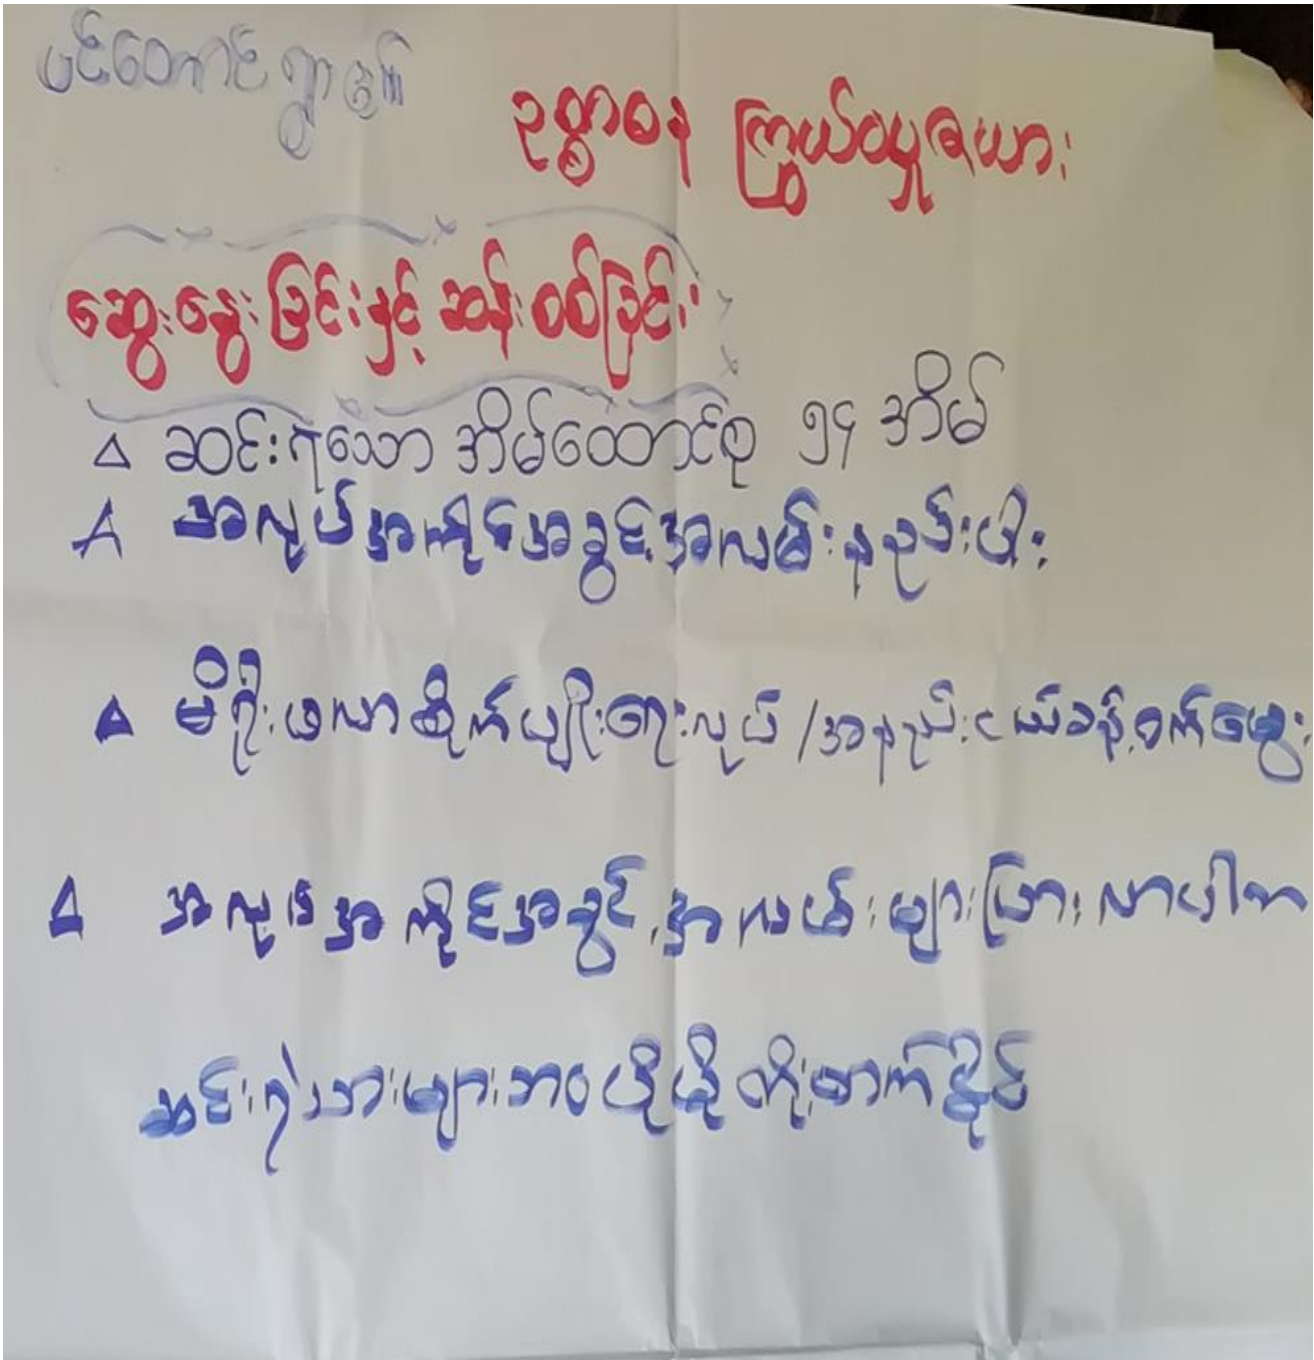 ပင်တောင်ရွာ
ဥစ္စာဓန ကြွယ်ဝမှုဇယား
ဆွေးနွေးခြင်းနှင့် ဆန်းစစ်ခြင်း
ဆင်းရဲသော အိမ်ထောင်စု ၅၄ အိမ်
အလုပ်အကိုင်အခွင့်အလမ်းနည်းပါး
မိရိုးဖလာစိုက်ပျိုးရေးလုပ် / အနည်းငယ်ခန့်ဝက်မွေး
အလုပ်အကိုင်အခွင့်အလမ်းများပြားလာပါက
ဆင်းရဲသားများဘဝပိုမိုတိုးတက်နိုင်